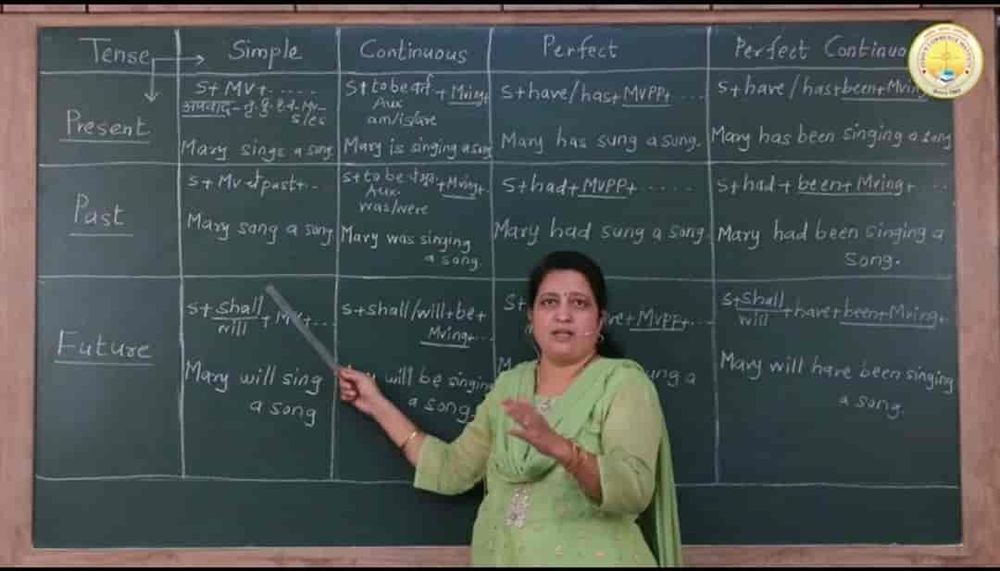 Tense Simple Continuous Perfect Perfect Continuo
Present
S+MV+......
अपवाद-
Mv-
s/es
Mary sings a song.
S+to be
Aux + Mving+
am/is/are
Mary is singing a song
S+have/has+MVPP+...
Mary has sung a song.
S+have/has+been+Mving
Mary has been singing a song
Past
S+Mv चे past+..
Mary sang a song.
S+to be
Aux. +Mving+
was/were
Mary was singing
a song.
S+had+MVPP+....
Mary had sung a song.
S+had+been+Mving+..
Mary had been singing a
song.
Future
S+shall
will +MV+...
Mary will sing
a song
S+shall/will+be+
Mving+...
will be singing
a song.
S+
+MVPP+...
sung a
S+shall
will +have+been+Mving+..
Mary will have been singing
a song.